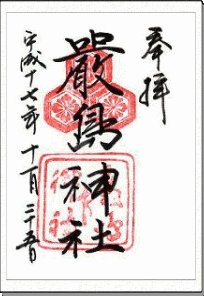 奉拝
嚴島神社
平成十七年 十一月 二十五日